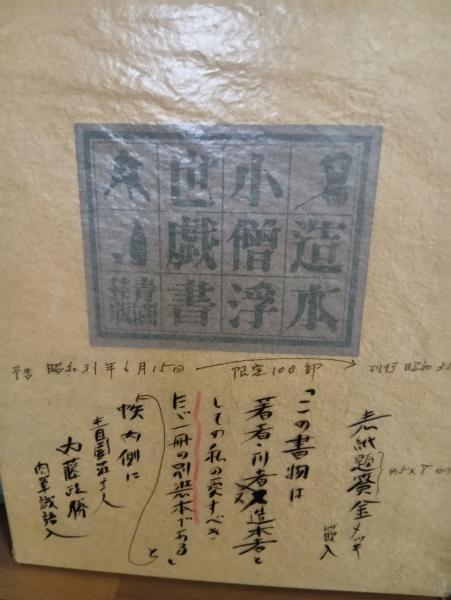 造本
小僧浮
世戯書
青園
荘版
予告 昭和31年6月15日
限定100部
刊行 昭和3
表紙題簽金メッキ
嵌入
4.5×7
「この書物は
著者・刊者又造本者と
しての私の愛すべき
たゞ一冊の別装本である」
と
帙内側に
青園荘主人
内藤政勝
肉筆識語入